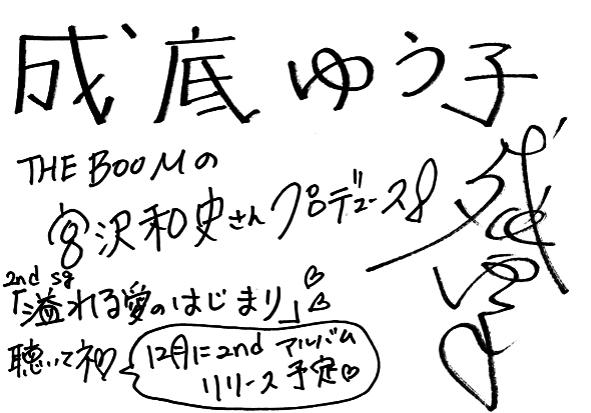 成底ゆう子
THE BOOMの
宮沢和史さんプロデュース♪
2nd sg
「溢れる愛のはじまり」♡♡
聴いてネ♡
12月に2nd アルバム
リリース予定♡